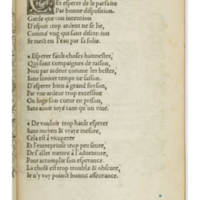 Et esperer de le parfaire
Par bonne disposition.
Garde que ton intention
D'espoir trop ardent ne se lie,
Comme vng que
Se mesle en l'eau par sa folie.
Esperer fault choses honnestes,
Qui sont compaignes de raison,
Non par ardeur comme les bestes,
Sans temps auoir ne saison.
D'esperer bien à grand foyson,
Par vne ardeur trop excessiue
On loge son cueur en prison,
Sans auoir soyt tant qu'on viue.
De vouloir trop hault esperer
Sans moyen & vraye mesure,
C'est la cause de
Et l'entreprinse trop peu seure,
De s'aller mettre à l'aduenture,
Pour accomplir son esperance.
La chose est trop trouble & obscure,
Je n'y voy poinct bonne asseurance.